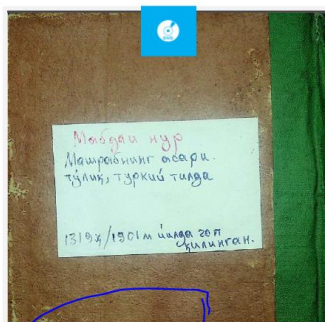 Мабдаи нур
Машрабнинг асари.
тўлиқ, туркий тилда
1319ҳ/1901м йилда чоп
қилинган.